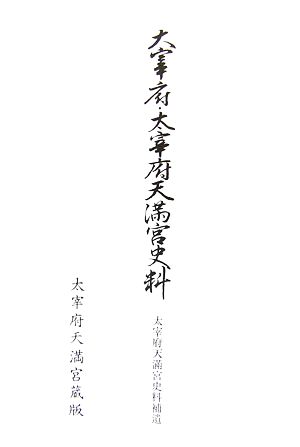 大宰府・太宰府天満宮史料
太宰府天満宮史料補遺
太宰府天満宮蔵版